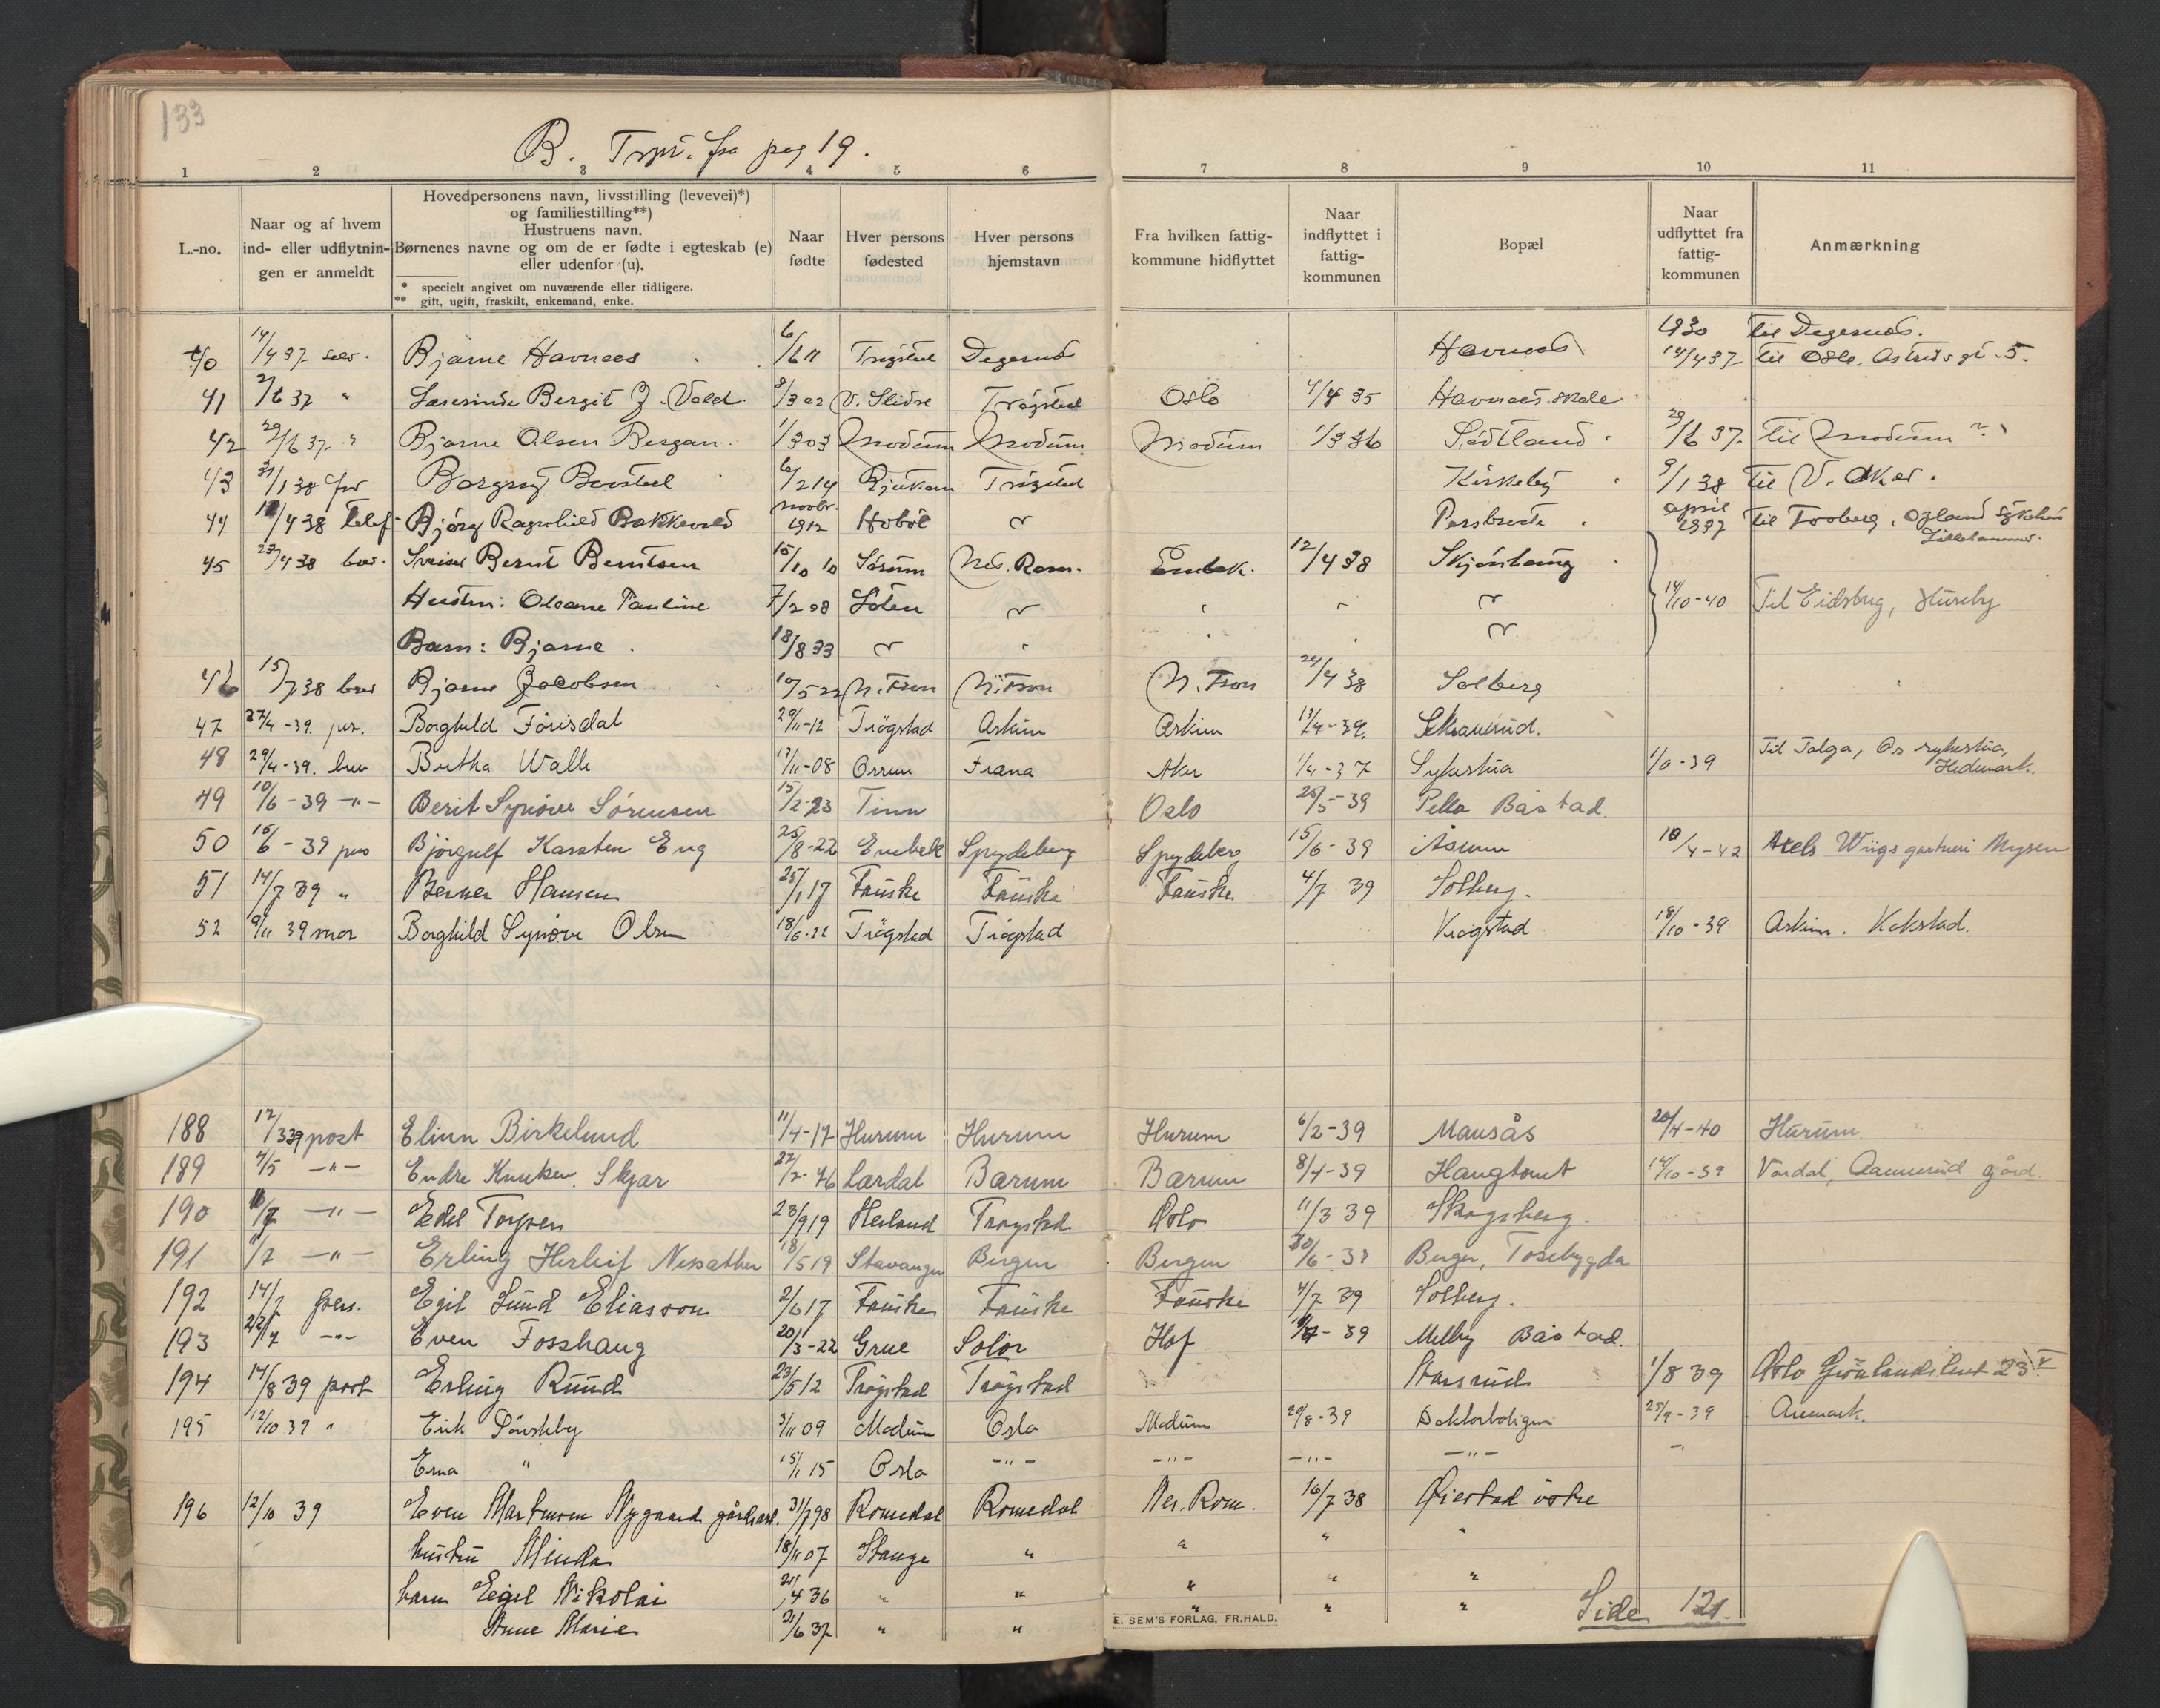 133
B. Trpt. fra pag 19.
1 2 3 4 5 6 7 8 9 10 11
L.-no.
Naar og af hvem
ind- eller udflytnin-
gen er anmeldt
Hovedpersonens navn, livsstilling (levevei)*)
og familiestilling**)
Hustruens navn.
Børnenes navne og om de er fødte i egteskab (e)
eller udenfor (u).
* specielt angivet om nuværende eller tidligere.
** gift, ugift, fraskilt, enkemand, enke.
Naar
fødte
Hver persons
fødested
Hver persons
hjemstavn
Fra hvilken fattig-
kommune hidflyttet
Naar
indflyttet i
fattig-
kommunen
Bopæl
Naar
udflyttet fra
fattig-
kommunen
Anmærkning
1930 til Degernes.
40 14/4 37 selv. Bjarne Havnaas 6/6 11 Trøgstad Degernes Havnaas 12/4 37 til Oslo, Astrids gt. 5.
41 2/6 37 " Lærerinde Bergit J. Vold 8/3 02 V. Slidre Trøgstad Oslo 4/4 35 Havnaas skole
42 29/6 37 " Bjarne Olsen Bergan 1/3 03 Modum Modum Modum 1/3 36 Sødtland 29/6 37 til Modum ?
43 31/1 38 for Borgny Baastad 6/2 14 Rjukan Trøgstad Kirkeby 9/1 38 til V. Aker.
44 11/4 38 telef. Bjørg Ragnhild Bakkevold novbr. 1912 Hobøl " Parsbrote april 1937 til Froberg, Opland sykehus Lillehammer.
45 23/4 38 brev. Sveiser Bernt Berntsen 15/10 10 Sørum Nes. Rom. Enebak. 12/4 38 Skjønhaug
Hustru: Oleane Pauline 7/2 08 Løten " " " " 14/10-40 Til Eidsberg, Hureby
Barn: Bjarne. 18/8 33 " " " " "
46 15/7 38 brev Bjarne Jacobsen 10/5 22 N. Fron N. Fron N. Fron 24/4 38 Solberg
47 27/4-39. per. Borghild Førisdal 29/11-12 Trögstad Askim Askim 13/4-39. Skramrud.
48 29/4-39. brev Butha Walle 13/11-08 Orrum Frana Aker 1/4-37 Sykestua 1/6-39 Til Tolga, Os sykestua, Hedmark.
49 10/6-39 -"- Berit Synöve Sörensen 15/2-23 Tinn Oslo 25/5-39 Pella Båstad.
50 15/6-39 pers Bjørgulf Karsten Eng 25/8-22 Enebak Spydeberg Spydeberg 15/6-39 Åsum 10/4-42 Axels Wiigs gartneri Mysen
51 14/7 39 " Berner Hansen 25/1 17 Fauske Fauske Fauske 4/7 39 Solberg.
52 9/11 39 mor Borghild Synöve Olsen 18/6-22 Trögstad Trögstad Kragstad 18/10-39 Askim. Kokstad.
188 17/3 39 post Elinn Birkelund 11/4-17 Hurum Hurum Hurum 6/2-39 Mansås 20/4-40 Hurum
189 4/5 -"- Endre Knutsen Skjar 22/2-76 Lærdal Bærum Bærum 8/4-39 Haugtomt 14/10-39 Vardal, Aamerud gård.
190 6/7 -"- Edel Torpen 23/9 19 Herland Trøgstad Oslo 11/3 39 Skogsberg.
191 11/7 -"- Erling Herleif Nessather 18/5 19 Stavanger Bergen Bergen 30/6-39 Berger, Tosebygda
192 14/7 pers. Egil Lund Eliasson 2/6 17 Fauske Fauske Fauske 4/7 39 Solberg.
193 22/7 -"- Even Fosshaug 20/3-22 Grue Solör Hof 1/7-39 Melby Båstad.
194 14/8 39 post Erling Ruud 23/5 12 Trøgstad Trøgstad Starsrud 1/8 39 Oslo Grönlandsleret 23 V
195 12/10 39 " Erik Lönskeby 3/11 09 Modum Oslo Modum 20/8-39 Doktorboligen 25/9-39 Aremark.
Erna " 15/1 15 Oslo -"- -"- -"- -"- -"-
196 12/10 39 Even Martinsen Nygaard gårdsarb. 31/7 98 Romedal Romedal Nes. Rom. 16/7 38 Øiestad östre
hustru Minda 18/11 07 Stange " " " "
barn Eigil Nikolai 24/4 36 " " " " "
Anne Marie 21/6 37 " " " " "
E. SEM'S FORLAG, FR.HALD.
Side 121.